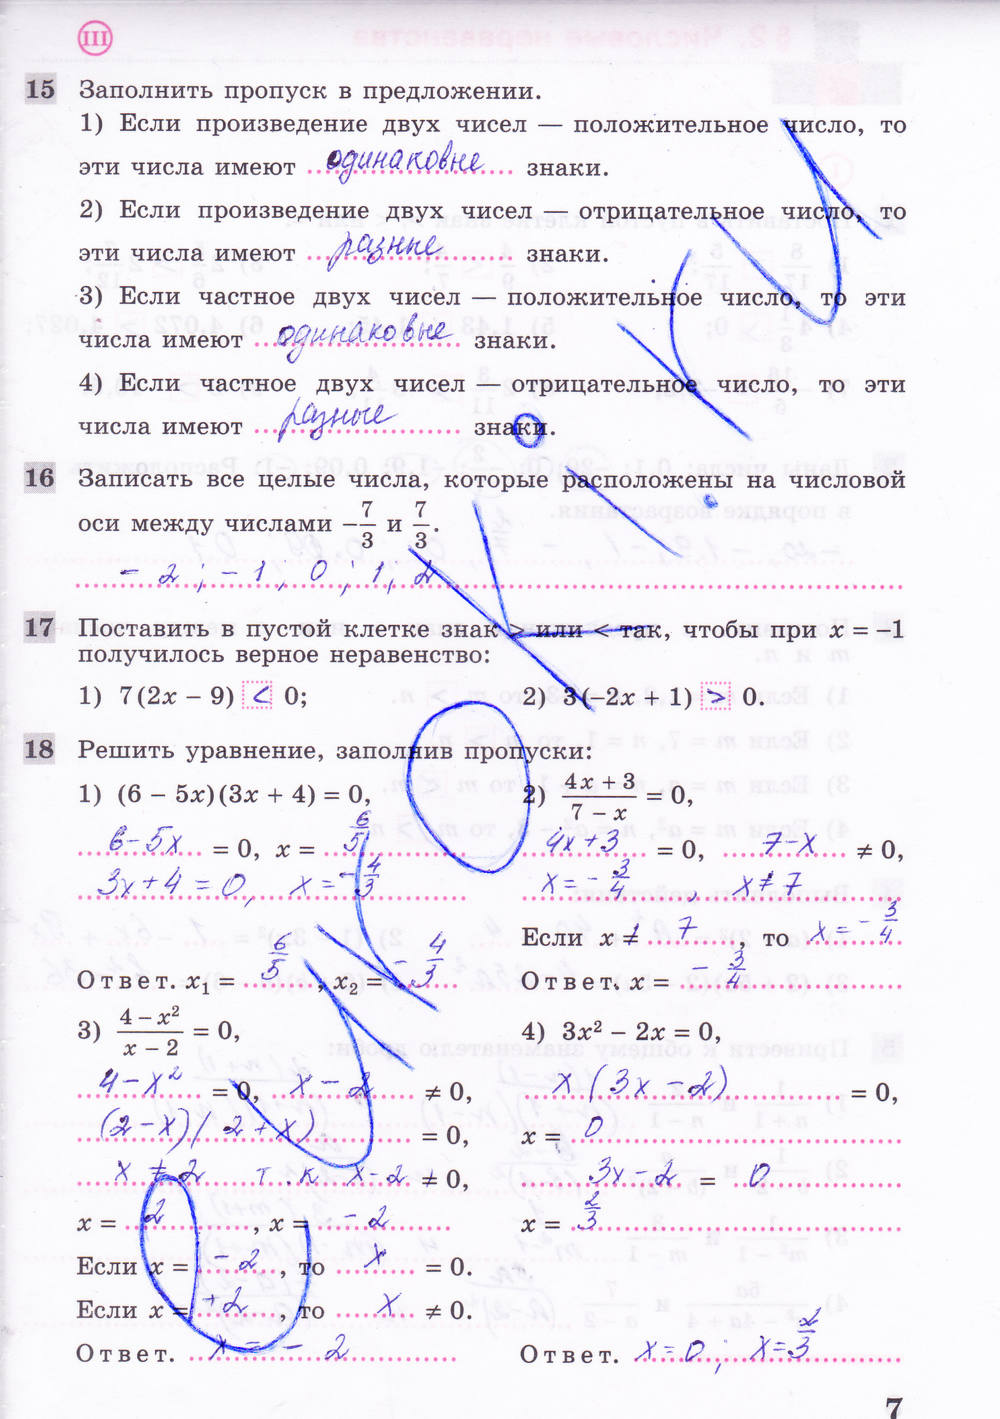 III
15 Заполнить пропуск в предложении.
1) Если произведение двух чисел — положительное число, то
эти числа имеют одинаковые знаки.
2) Если произведение двух чисел — отрицательное число, то
эти числа имеют разные знаки.
3) Если частное двух чисел — положительное число, то эти
числа имеют одинаковые знаки.
4) Если частное двух чисел — отрицательное число, то эти
числа имеют разные знаки.
16 Записать все целые числа, которые расположены на числовой
оси между числами −7/3 и 7/3.
− 2 ; − 1 ; 0 ; 1 ; 2
17 Поставить в пустой клетке знак > или < так, чтобы при x = −1
получилось верное неравенство:
1) 7(2x − 9) < 0; 2) 3(−2x + 1) > 0.
18 Решить уравнение, заполнив пропуски:
1) (6 − 5x)(3x + 4) = 0, 2) (4x + 3)/(7 − x) = 0,
6−5x = 0, x = 6/5 4x+3 = 0, 7−x ≠ 0,
3x+4 = 0, x = −4/3 x = −3/4, x ≠ 7
Если x ≠ 7, то x = −3/4
Ответ. x₁ = 6/5, x₂ = −4/3 Ответ. x = −3/4
3) (4 − x²)/(x − 2) = 0, 4) 3x² − 2x = 0,
4−x² = 0, x−2 ≠ 0, x(3x−2) = 0,
(2−x)(2+x) = 0, x = 0
x ≠ 2 т.к x−2 ≠ 0, 3x−2 = 0
x = 2, x = −2 x = 2/3
Если x = −2, то x = 0.
Если x = +2, то x ≠ 0.
Ответ. x = −2 Ответ. x=0; x=2/3
7